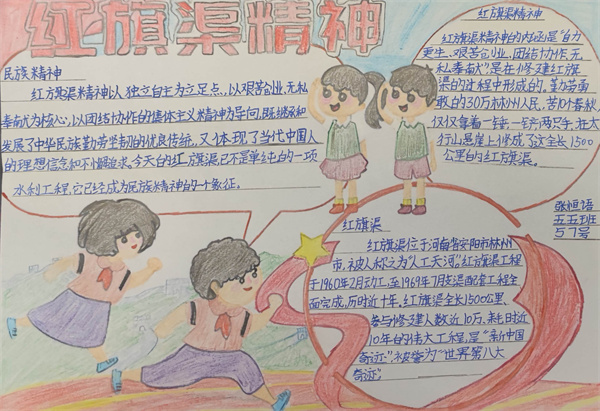 红旗渠精神
民族精神
红旗渠精神以独立自主为立足点，以艰苦创业、无私
奉献为核心，以团结协作的集体主义精神为导向，既继承和
发展了中华民族勤劳坚韧的优良传统，又体现了当代中国人
的理想信念和不懈追求。今天的红旗渠已不是单纯的一项
水利工程，它已经成为民族精神的一个象征。
红旗渠精神
红旗渠精神的内涵是“自力
更生、艰苦创业、团结协作、无
私奉献”，是在修建红旗
渠的过程中形成的，勤劳勇
敢的30万林州人民，苦干春秋，
仅仅靠着一锤一铲两只手，在太
行山悬崖上修成了这全长1500
公里的红旗渠。
张恒语
五五班
57号
红旗渠
红旗渠位于河南省安阳市林州
市，被人称之为“人工天河”。红旗渠工程
于1960年2月动工，至1969年7月支渠配套工程全
面完成，历时近十年。红旗渠全长1500公里、
参与修建人数近10万，耗时近
10年的伟大工程，是“新中国
奇迹”，被誉为“世界第八大
奇迹”。